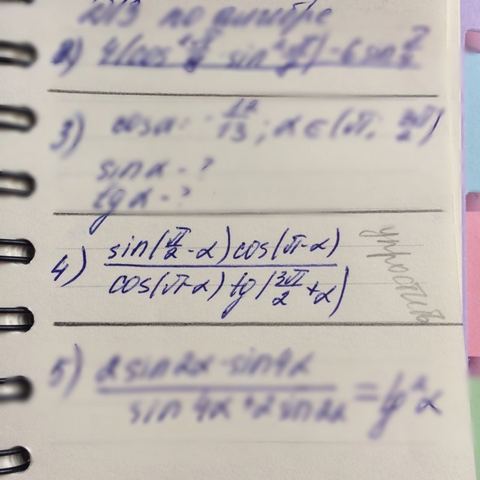 ДЗ по алгебре
2) 4(cos² - sin²) - 6 sin
3) cosα = -12/13; α ∈ (π; 3π/2)
sinα - ?
tgα - ?
4) sin(π/2 - α) cos(π - α)
cos(π - α) tg(3π/2 + α)
упростить
5) 2 sin2α - sin4α
sin 4α + 2 sin2α = tg²α